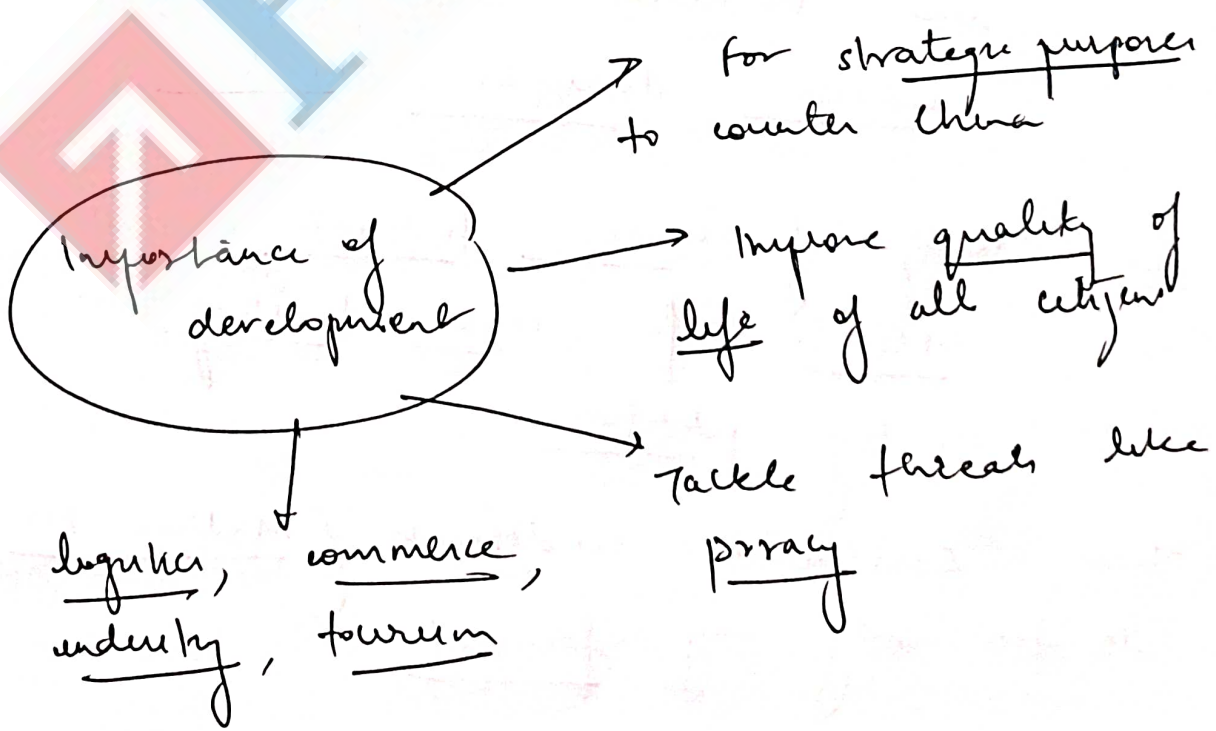 Importance of
development
for strategic purposes
to counter China
Improve quality of
life of all citizens
Tackle threats like
piracy
logistics, commerce,
industry, tourism